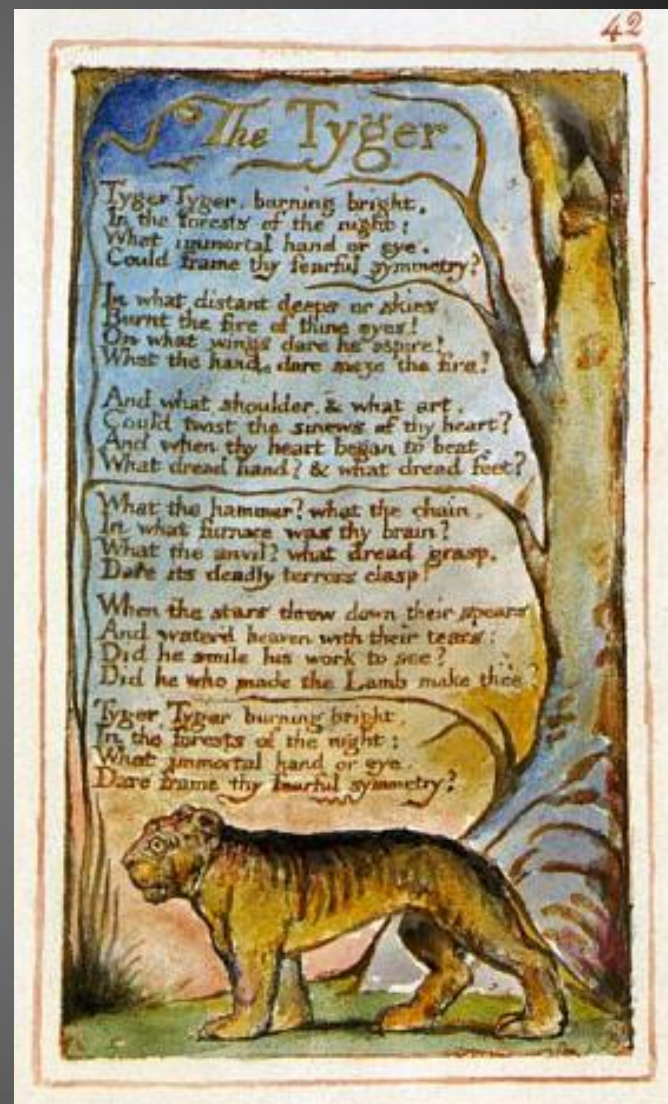 42
The Tyger
Tyger Tyger, burning bright,
In the forests of the night:
What immortal hand or eye,
Could frame thy fearful symmetry?
In what distant deeps or skies
Burnt the fire of thine eyes!
On what wings dare he aspire!
What the hand, dare sieze the fire?
And what shoulder, & what art,
Could twist the sinews of thy heart?
And when thy heart began to beat,
What dread hand? & what dread feet?
What the hammer? what the chain,
In what furnace was thy brain?
What the anvil? what dread grasp,
Dare its deadly terrors clasp!
When the stars threw down their spears
And water'd heaven with their tears:
Did he smile his work to see?
Did he who made the Lamb make thee?
Tyger, Tyger burning bright,
In the forests of the night:
What immortal hand or eye,
Dare frame thy fearful symmetry?